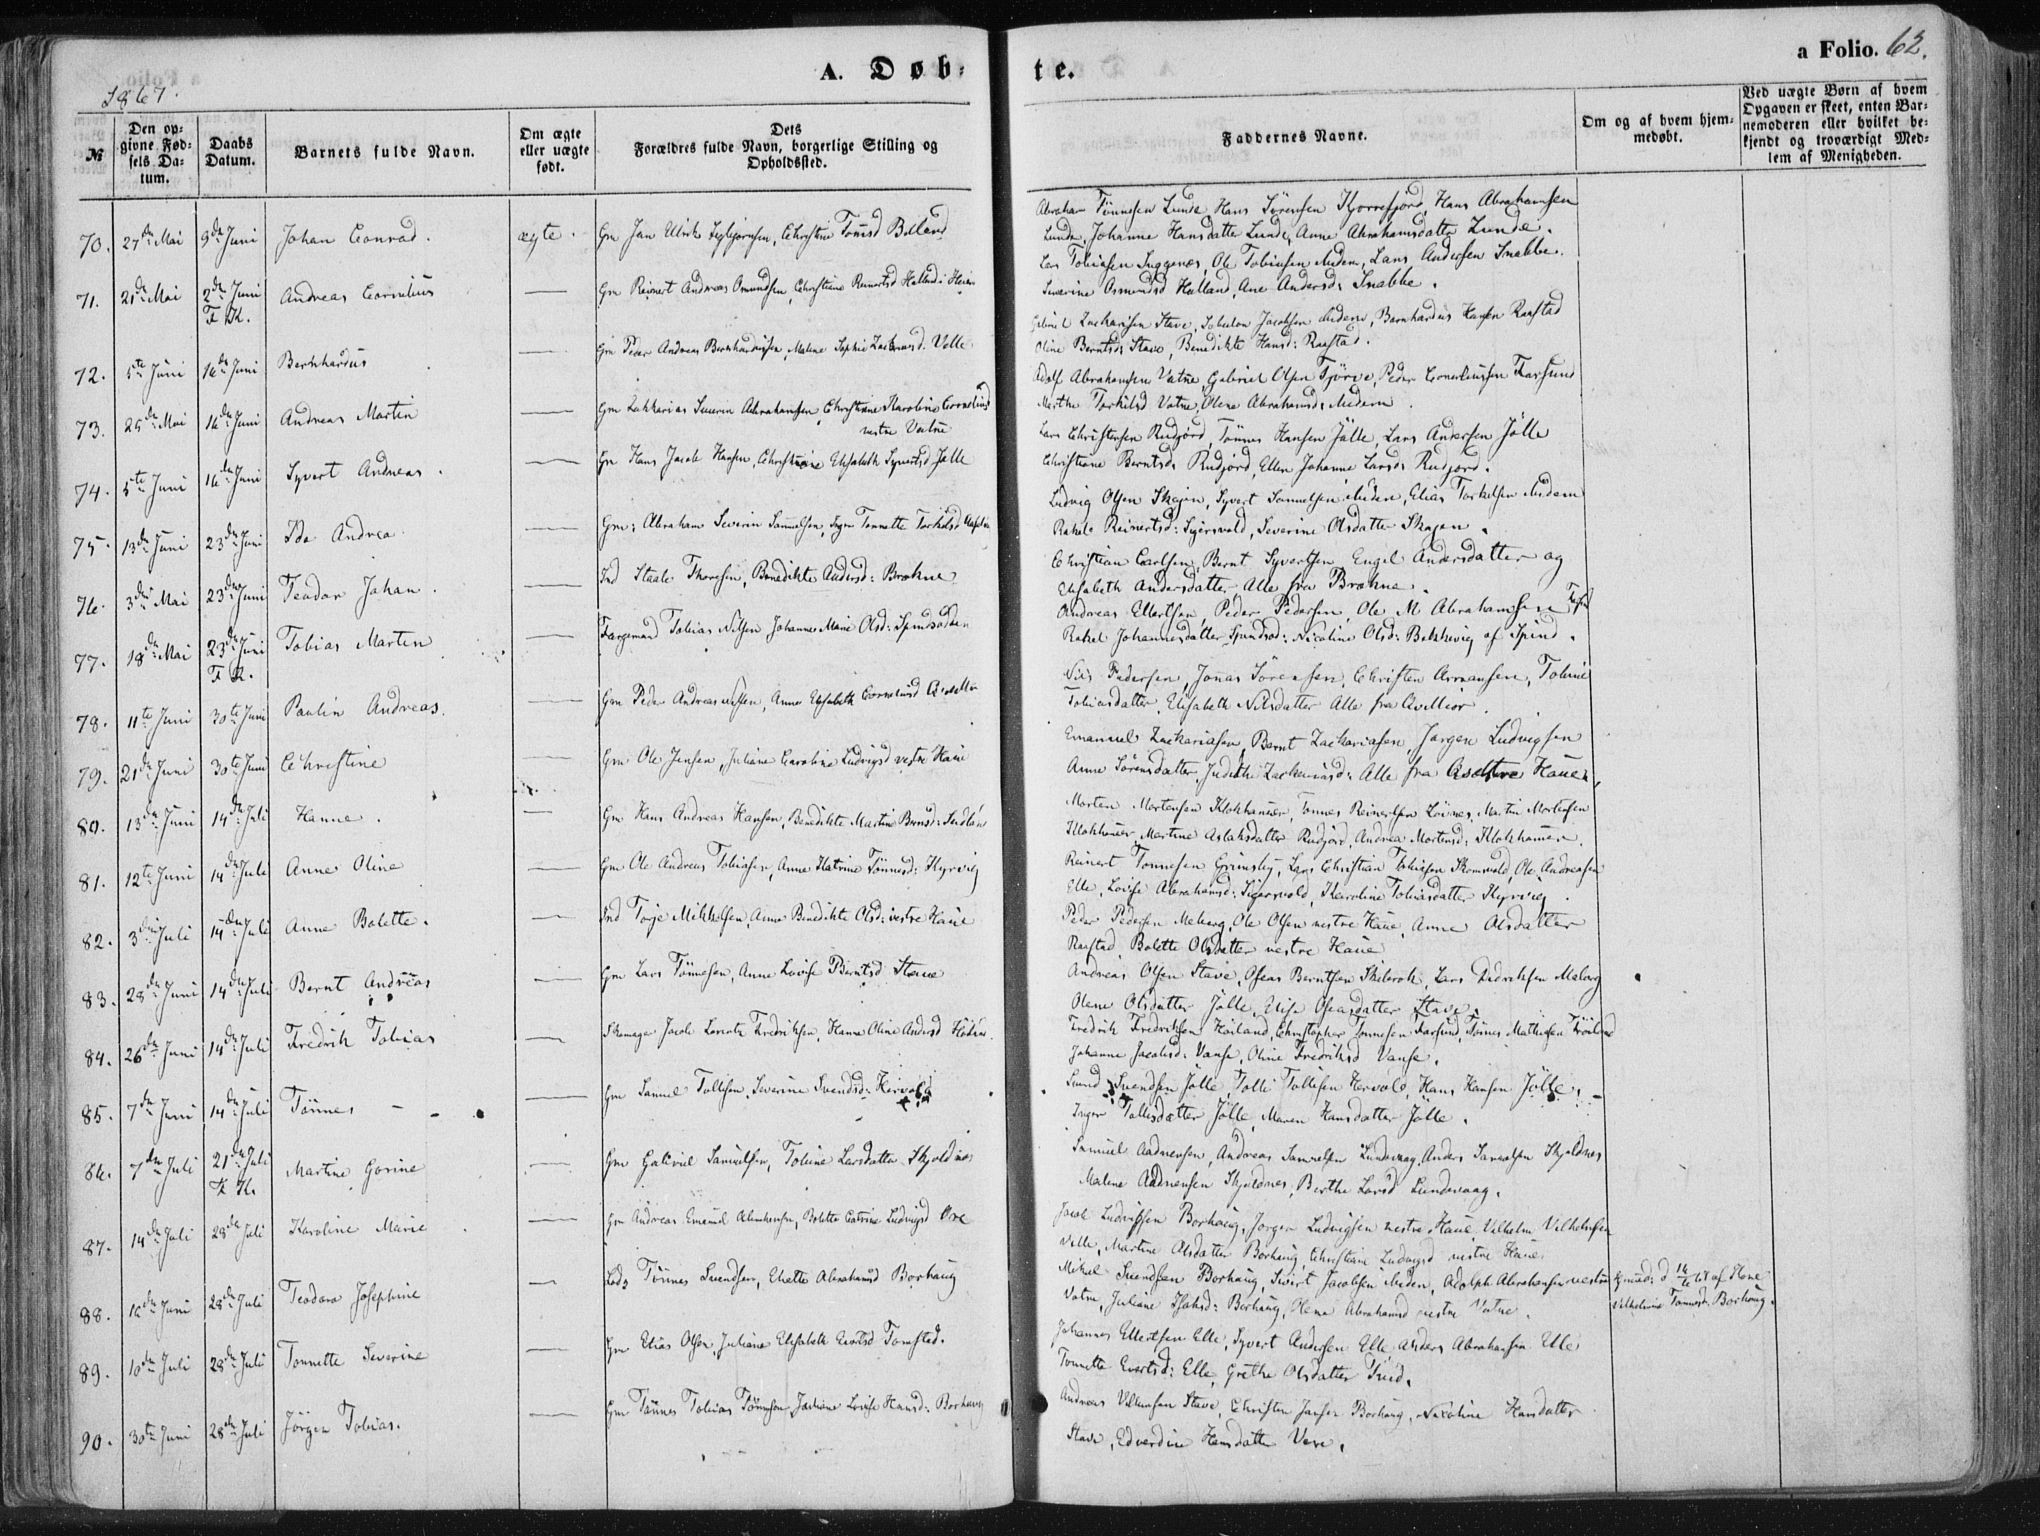 1867.
A. Døb-
te.
a Folio. 62.
№
Den opgivne Fødsels Datum.
Daabs Datum.
Barnets fulde Navn.
Om ægte eller uægte født.
Dets Forældres fulde Navn, borgerlige Stilling og Opholdssted.
Faddernes Navne.
Om og af hvem hjemmedøbt.
Ved uægte Børn af hvem Opgaven er skeet, enten Barnemoderen eller hvilket bekjendt og troværdigt Medlem af Menigheden.
70. 27de Mai 9de Juni Johan Conrad. ægte. Gm Jan Ulrik Christine
Abraham Tønnesen Lunde Hans Sørensen Hans Abrahamsen
Lunde, Johanne Hansdatter Lunde, Anne Abrahamsdatter Lunde.
71. 21de Mai 2de Juni F. K. Andreas Cornelius — Gm Reinert Andreas Omundsen, Christine Reinertsd
Lars Tobiasen Ole Tobiasen ibidem, Lars Andersen Snabbe.
Severine Osmundsd Ane Andersd: Snabbe.
72. 5te Juni 16de Juni Bernhardus — Gm Peder Andreas Bernhardusen, Malene Sophie
Gabriel Zachariasen Stave, Jacobsen ibidem, Bernhardus Hansen Raastad
Oline Berntsd: Stave, Benedikte Hansd: Raastad.
73. 25de Mai 16de Juni Andreas Martin — Gm Zakkarias Severin Abrahamsen, Christiane Karoline Corneliusd
vestre Vatne
Adolf Abrahamsen Vatne, Gabriel Olsen Tjørve, Peder Corneliussen Farsund
Marthe Torkildsd Vatne, Olene Abrahamsd: ibidem.
74. 5te Juni 16de Juni Syvert Andreas. — Gm Hans Jacob Hansen, Christiane Elisabeth Syvertsd Jølle
Lars Christensen Rudjord, Tønnes Hansen Jølle, Lars Andersen Jølle
Christiane Berntsd: Rudjord, Ellen Johanne Larsd: Rudjord.
75. 13de Juni 23de Juni Ida Andrea — Gm: Abraham Severin Samuelsen, Inger Tonnette Torkildsd
Ludvig Olsen Skagen, Syvert Samuelsen ibidem, Elias Torkelsen ibidem
Rakel Reinertsd: Severine Olsdatter Skagen.
76. 3die Mai 23de Juni Teodor Johan. — Ind Staale Thorsen, Benedikte Andersd: Brækne
Christian Carlsen, Bernt Syvertsen Engel Andersdatter og
Elisabeth Andersdatter, Alle fra Brækne.
77. 18de Mai 23de Juni F. K. Tobias Martin — Tobias Nilsen Johanne Marie Olsd: Spindsodden
Andreas Ellertsen, Peder Pedersen, Ole M Abrahamsen
Rakel Johannesdatter Nicoline Olsd: Bekkevig af Spind.
78. 11te Juni 30te Juni Paulin Andreas. — Gm Peder Andreas Nilsen, Anne Elisabeth Corneliusd
Nils Pedersen, Jonas Sørensen, Christen Tobine
Tobiasdatter, Elisabeth Nilsdatter Alle fra
79. 21de Juni 30te Juni Christine — Gm Ole Jensen, Juliane Caroline Ludvigsd vestre Haue
Emanuel Zachariasen, Bernt Zachariasen, Jørgen Ludvigsen
Anne Sørensdatter, Judithe Zachariasd: Alle fra Haue.
80. 13de Juni 14de Juli Hanne. — Gm Hans Andreas Hansen, Benedikte Martine
Morten Mortensen Klokhammer, Tønnes Reinertsen Martin Mortensen
Klokhammer, Martine Aslaksdatter Rudjord, Andrea Mortensd: Klokhammer.
81. 12te Juni 14de Juli Anne Oline — Gm Ole Andreas Tobiasen, Anne Katrine Tønnesd: Hyrvig
Reinert Tønnesen Grimsby, Lars Christian Tobiasen Ole Andreasen
Elle, Lovise Abrahamsd: Karoline Tobiasdatter Hyrvig.
82. 3die Juli 14de Juli Anne Bolette. — Ind Tarje Mikkelsen, Anne Benedikte Olsd: vestre Haue
Peder Pedersen Meberg, Ole Olsen vestre Haue, Anne Olsdatter
Raastad, Bolette Olsdatter vestre Haue
83. 28de Juni 14de Juli Bernt Andreas — Gm Lars Tønnesen, Anne Lovise Berntsd Stave
Andreas Olsen Stave, Oseas Berntsen Lars Didriksen Meberg
Olene Olsdatter Jølle, Oseasdatter Stave.
84. 26de Juni 14de Juli Fredrik Tobias — Skomager Jacob Lorentz Fredriksen, Hanne Oline Andersd
Fredrik Fredriksen Christopher Tønnesen Farsund, Tønnes Mathiesen
Johanne Jacobsd: Vanse, Oline Fredriksd Vanse.
85. 7de Juni 14de Juli Tønnes — Gm Samuel Tollisen, Severine Svendsd:
Svendsen Jølle, Tolli Tollisen Hans Hansen Jølle,
Inger Tollisdatter Jølle, Maren Hansdatter Jølle.
86. 7de Juli 21de Juli F. K. Martine Gorine — Gm Gabriel Samuelsen, Tobine Larsdatter Skjoldnes
Samuel Aadnesen, Andreas Samuelsen Lundevaag, Anders Samuelsen Skjoldnes
Malene Aadnesen Skjoldnes, Berthe Larsd Lundevaag.
87. 14de Juli 28de Juli Karoline Marie — Gm Andreas Emanuel Abrahamsen, Bolette Catrine Ludvigsd Ore
Jacob Ludvigsen Borhaug, Jørgen Ludvigsen vestre Haue, Vilhelm Vilhelmsen
Velle, Martine Olsdatter Borhaug, Christiane Ludvigsd vestre Haue
88. 16de Juni 28de Juli Teodora Josephine — Lods Tønnes Svendsen, Elette Abrahamsd Borhaug
Mikal Svendsen Borhaug, Sivert Jacobsen ibidem, Adolph Abrahamsen vestre
Vatne, Juliane Isaksd: Borhaug, Olene Abrahamsd vestre Vatne.
hjmdbt d 16/6 67 af
Vilhelmine Tønnesd: Borhaug.
89. 10de Juli 28de Juli Tonnette Severine — Gm Elias Olsen, Juliane Elisabeth Evertsd Tomstad.
Johannes Ellertsen Elle, Syvert Andersen Elle, Anders Abrahamsen Elle
Tonnette Evertsd: Elle, Grethe Olsdatter
90. 30te Juni 28de Juli Jørgen Tobias. — Gm Tønnes Tobias Tønnesen, Juliane Lovise Hansd: Borhaug
Andreas Stave, Christen Jansen Borhaug, Nicoline Hansdatter
Stave, Edvardine Hansdatter Vere.